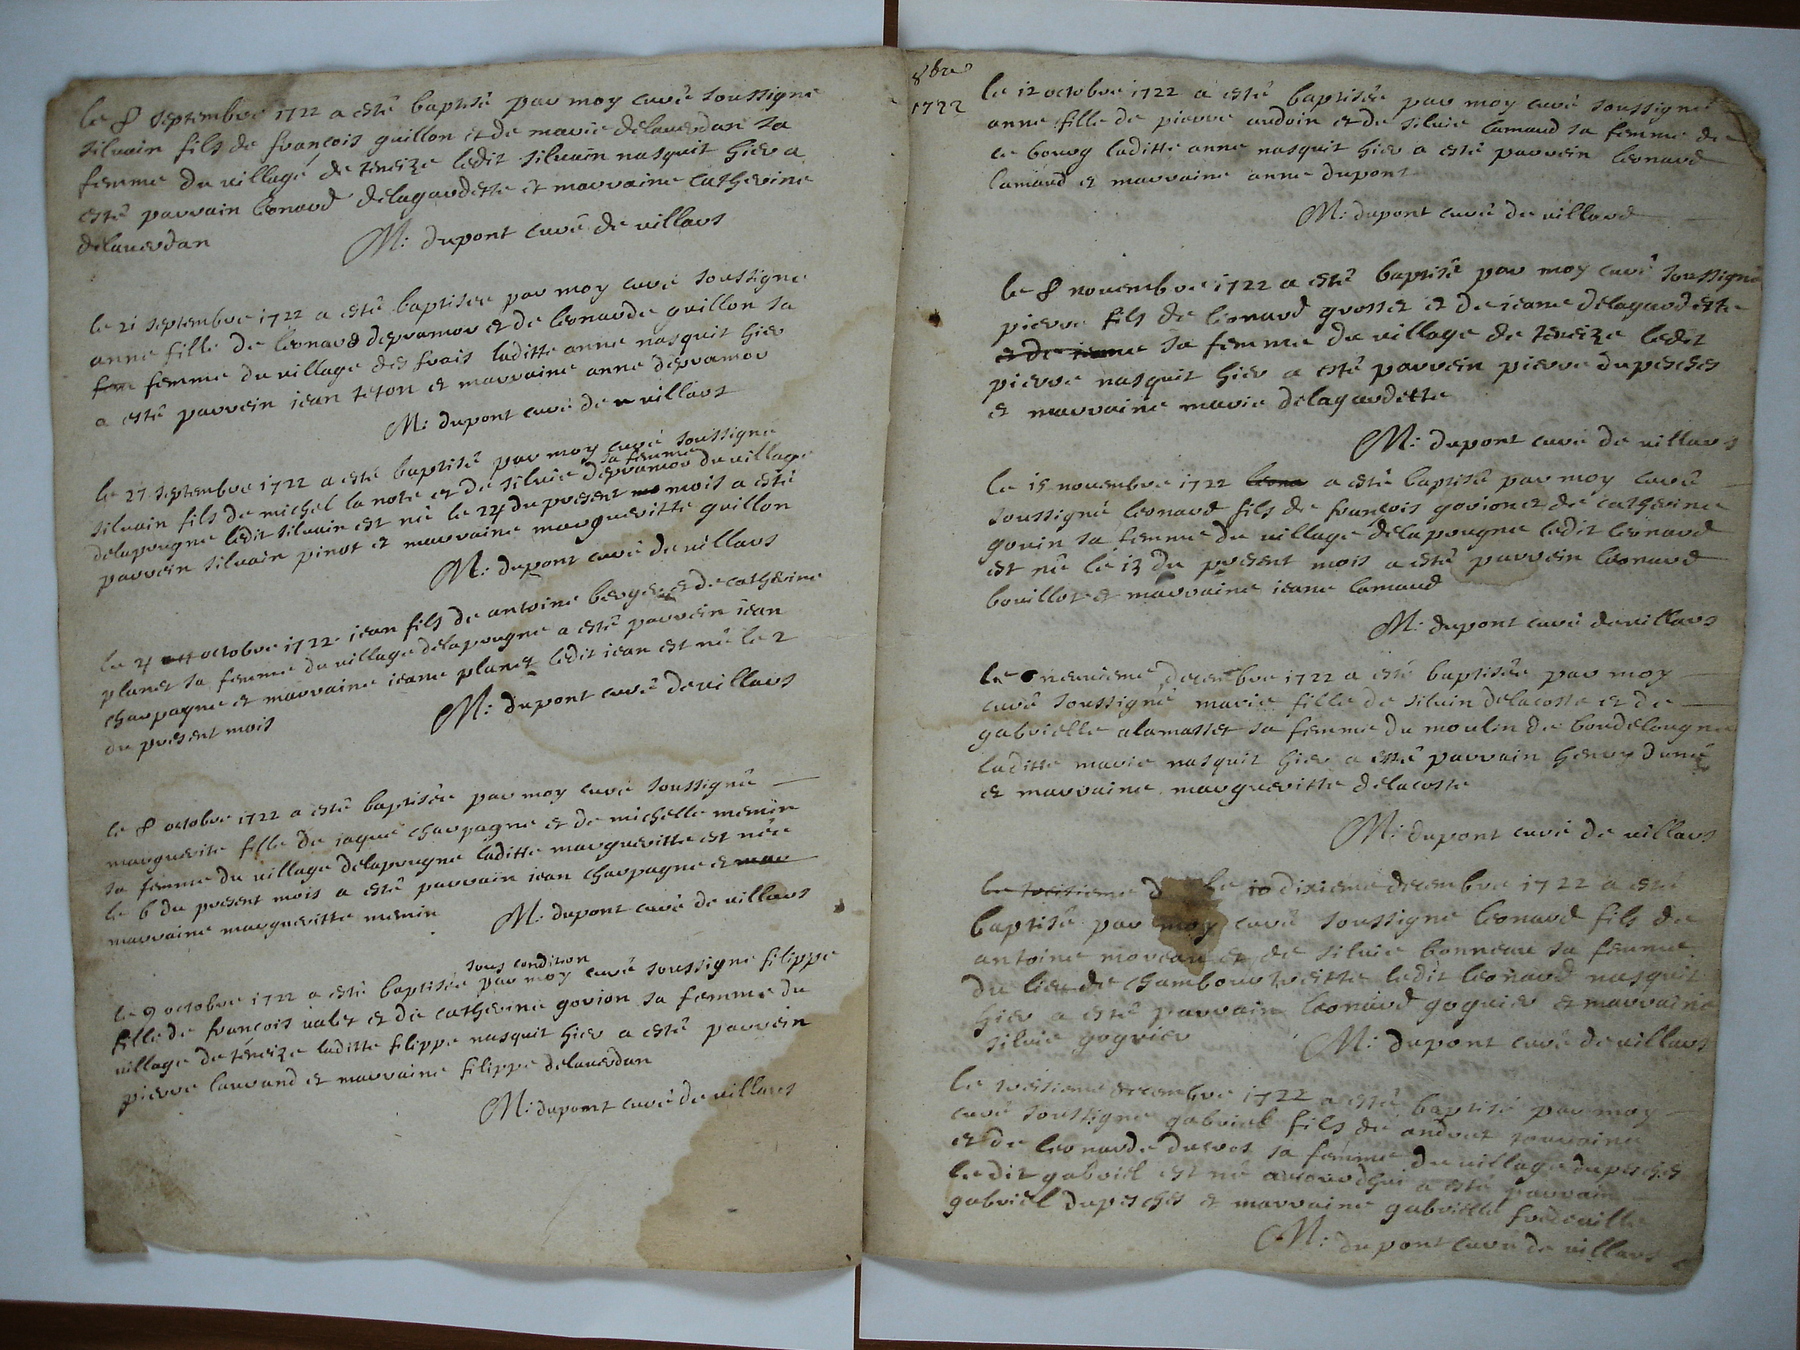 le 8 septembre 1722 a esté baptisé par moy curé soussigné
silvain fils de françois guillon et de marie delaverdan sa
femme du village de teneize ledit silvain nasquit hier a
esté parrain leonard delagardette et marraine catherine
delaverdan
M: dupont curé de villars
le 21 septembre 1722 a esté baptisée par moy curé soussigné
anne fille de leonard depramor et de leonarde guillon sa
femme du village des frais laditte anne nasquit hier
a esté parrein iean teton et marraine anne depramor
M: dupont curé de villars
le 27 septembre 1722 a esté baptisé par moy curé soussigné
silvain fils de michel la note et de silvie depramor sa femme du village
delapougne ledit silvain est né le 24 du present mois a esté
parrein silvain pinot et marraine marguevitte guillon
M: dupont curé de villars
le 4 octobre 1722 iean fils de antoine berger et de catherine
planet sa femme du village delapougne a esté parrein iean
charpagne et marraine ieane planet ledit iean est né le 2
du present mois
M: dupont curé de villars
le 8 octobre 1722 a esté baptisée par moy curé soussigné
marguerite fille de iaque charpagne et de michelle menin
sa femme du village delapougne laditte marguevitte est née
le 6 du present mois a esté parrain iean charpagne et mar
marraine marguevitte menin
M: dupont curé de villars
le 9 octobre 1722 a esté baptisée sous condition par moy curé soussigné filippe
fille de françois valet et de catherine govion sa femme du
village de teneize laditte filippe nasquit hier a esté parrein
pierre laurand et marraine filippe delaverdan
M: dupont curé de villars
8bre
1722
le 12 octobre 1722 a esté baptisée par moy curé soussigné
anne fille de pierre audoin et de silvie lamaud sa femme de
ce bourg laditte anne nasquit hier a esté parrein leonard
lamaud et marraine anne dupont
M: dupont curé de villard
le 8 novembre 1722 a esté baptisé par moy curé soussigné
pierre fils de leonard grosset et de ieane delagardette
et de ieane sa femme du village de teneize ledit
pierre nasquit hier a esté parrein pierre dupesches
et marraine marie delagardette
M: dupont curé de villars
le 15 novembre 1722 leona a esté baptisé par moy curé
soussigné leonard fils de françois govion et de catherine
gouin sa femme du village delapougne ledit leonard
est né le 13 du present mois a esté parrein leonard
bouillot et marraine ieane lamaud
M: dupont curé de villars
le neuvieme decembre 1722 a esté baptisée par moy
curé soussigné marie fille de silvin delacoste et de
gabrielle alamasset sa femme du moulin de bordelougne
laditte marie nasquit hier a esté parrain henry duné
et marraine marguevitte delacoste
M: dupont curé de villars
le treisieme d le 10 dixieme decembre 1722 a esté
baptisé par moy curé soussigné leonard fils de
antoine moreau et de silvie bonneau sa femme
du lieu de chambourtreitte ledit leonard nasquit
hier a esté parrain leonard goguier et marraine
silvie goguier
M: dupont curé de villars
le treisieme decembre 1722 a esté baptisé par moy
curé soussigné gabriel fils de andret touraine
et de leonarde ducros sa femme du village dupesches
ledit gabriel est né auiourdhui a esté parrain
gabriel dupesches et marraine gabrielle fredouille
M: dupont curé de villars